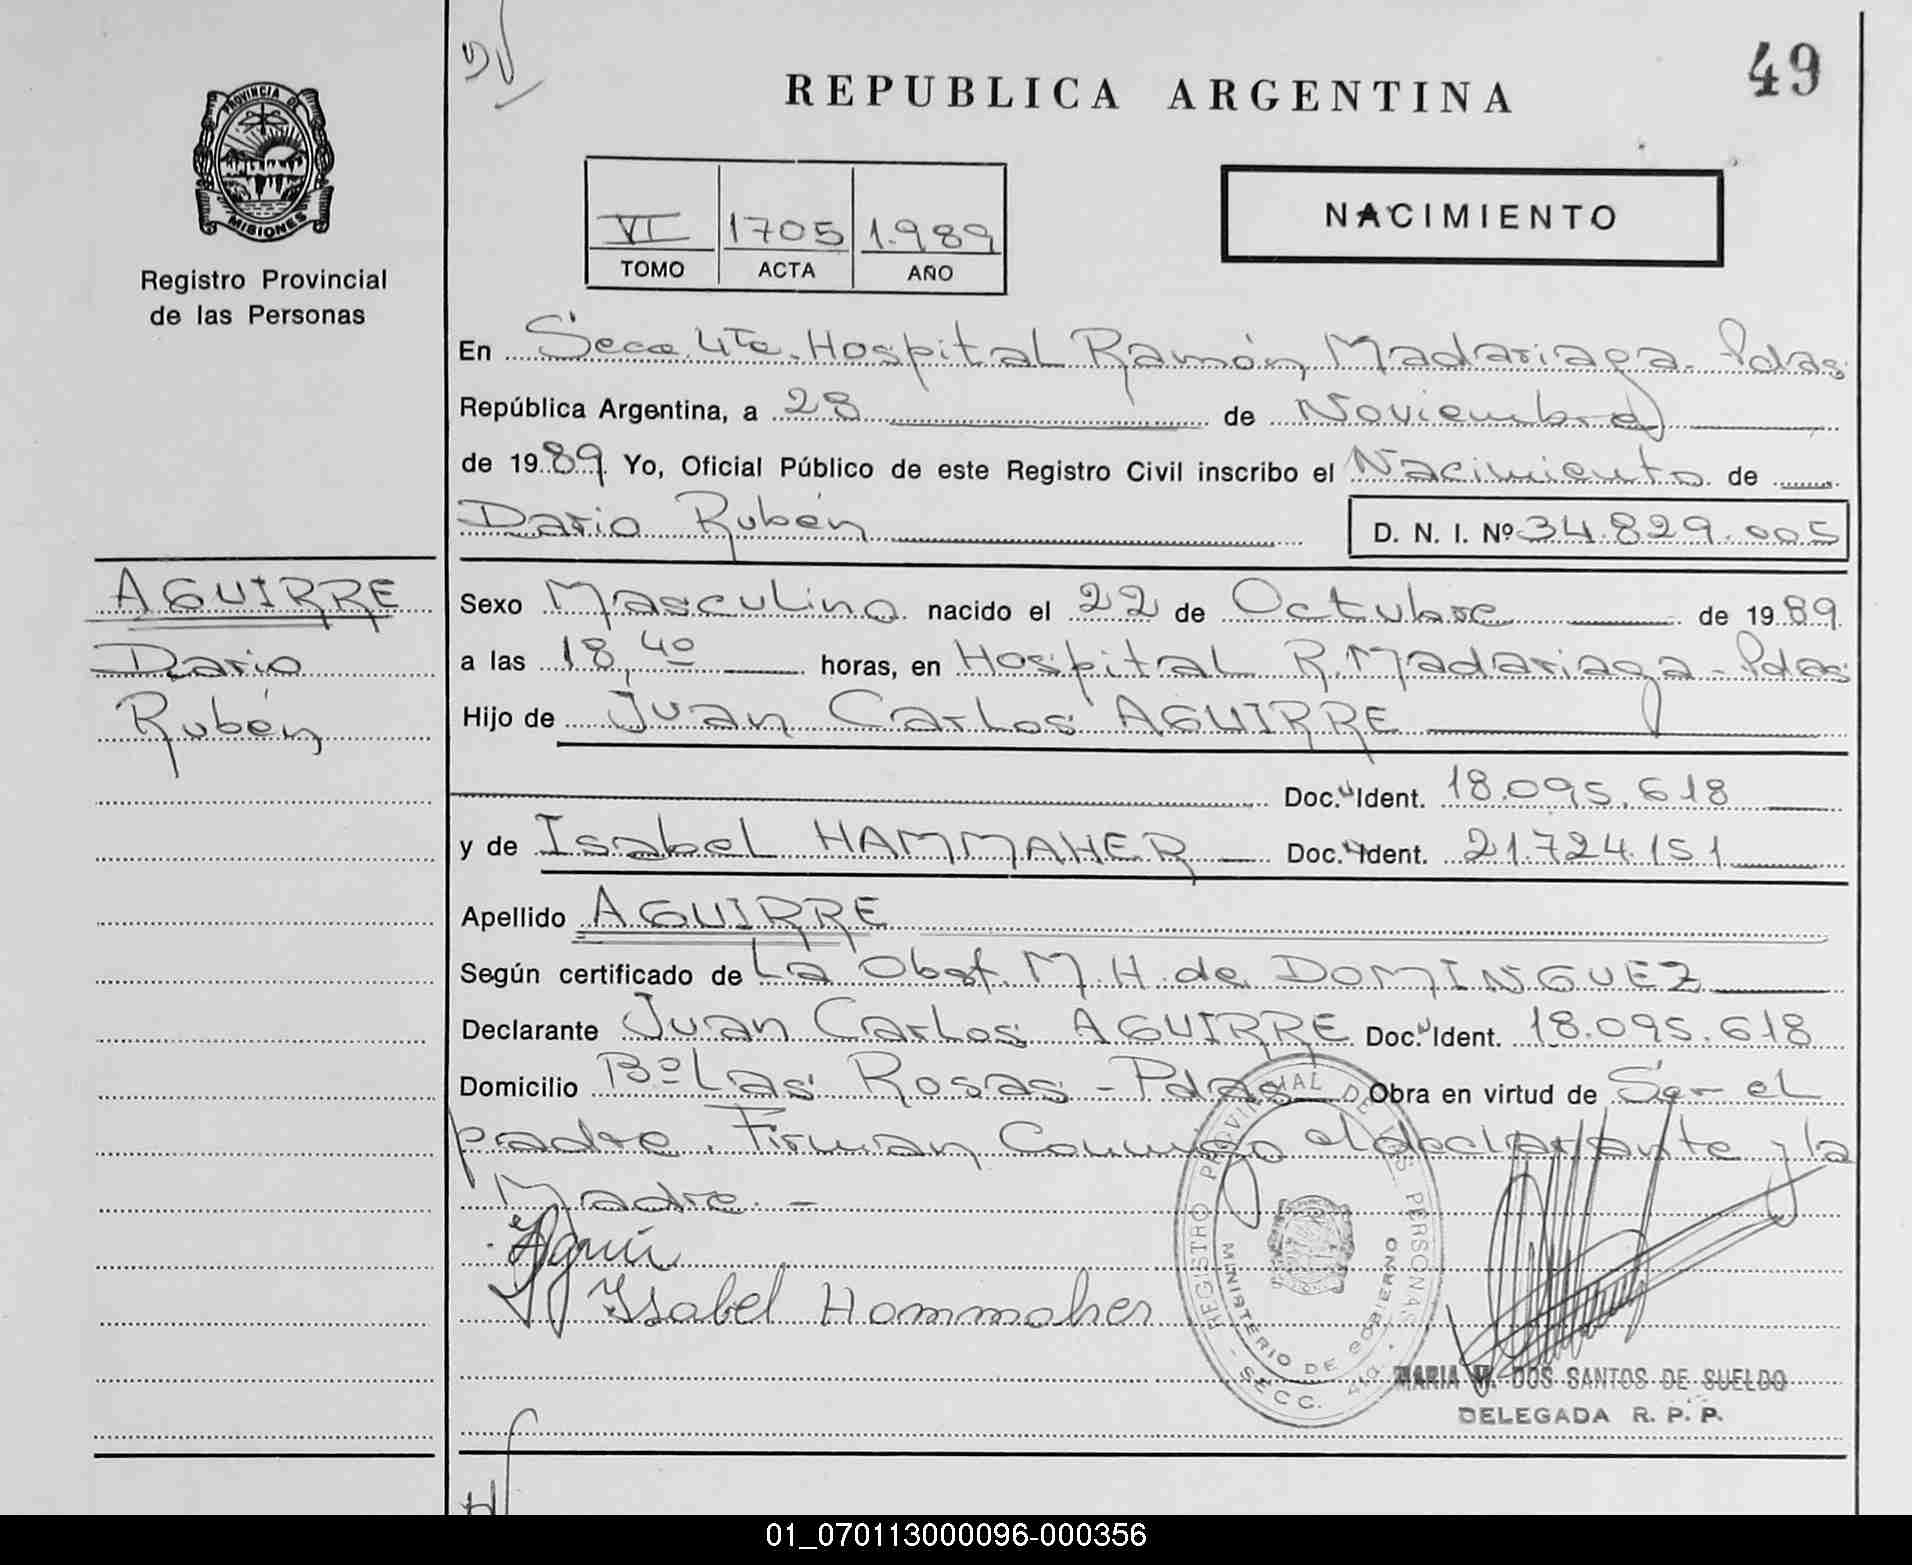 49
REPUBLICA ARGENTINA
PROVINCIA DE
MISIONES
Registro Provincial
de las Personas
VI 1705 1.989
TOMO ACTA AÑO
NACIMIENTO
En Secc. 4ta. Hospital Ramón Madariaga - Pdas
República Argentina, a 28 de Noviembre
de 1989 Yo, Oficial Público de este Registro Civil inscribo el Nacimiento de
Dario Rubén D. N. I. Nº 34.829.005
AGUIRRE
Dario
Rubén
Sexo Masculino nacido el 22 de Octubre de 1989
a las 18,40 horas, en Hospital R. Madariaga - Pdas
Hijo de Juan Carlos AGUIRRE
Doc. Ident. 18.095.618
y de Isabel HAMMAHER Doc. Ident. 21.724.151
Apellido AGUIRRE
Según certificado de La Obst. M. H. de DOMINGUEZ
Declarante Juan Carlos AGUIRRE Doc. Ident. 18.095.618
Domicilio Bº Las Rosas - Pdas Obra en virtud de Ser el
padre. Firman Conmigo el declarante y la
Madre. -
Isabel Hammaher
REGISTRO PROVINCIAL DE LAS PERSONAS
MINISTERIO DE GOBIERNO
- SECC. 4ta. -
MARIA DOS SANTOS DE SUELDO
DELEGADA R. P. P.
01_070113000096-000356